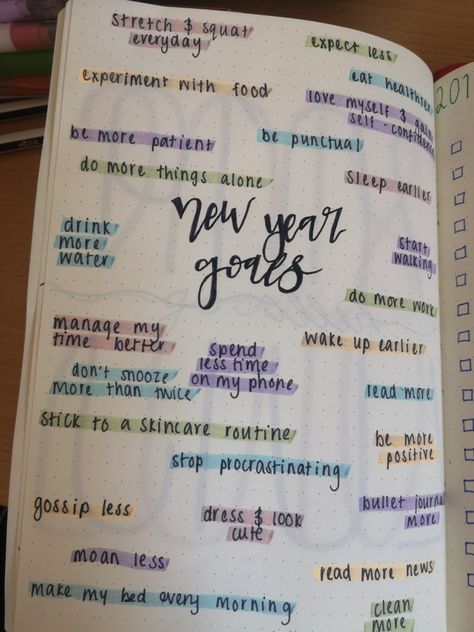 stretch & squat
everyday
expect less
experiment with food
eat healthier
love myself & gain
self-confidence
201
be more patient
be punctual
do more things alone
sleep earlier
new year
goals
drink
more
water
start
walking
do more work
manage my
time better
spend
less time
on my phone
wake up earlier
don't snooze
more than twice
read more
stick to a skincare routine
be more
positive
stop procrastinating
gossip less
dress & look
cute
bullet journal
more
moan less
read more news
make my bed every morning
clean
more